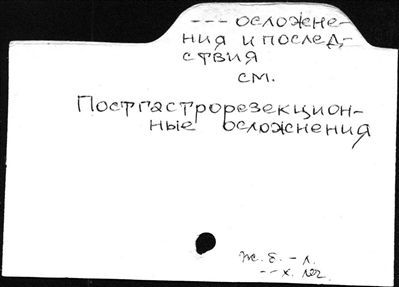 --- осложне-
ния и послед-
ствия
см.
Постгастрорезекцион-
ные осложнения
ж. б. - л.
-- х. леч.